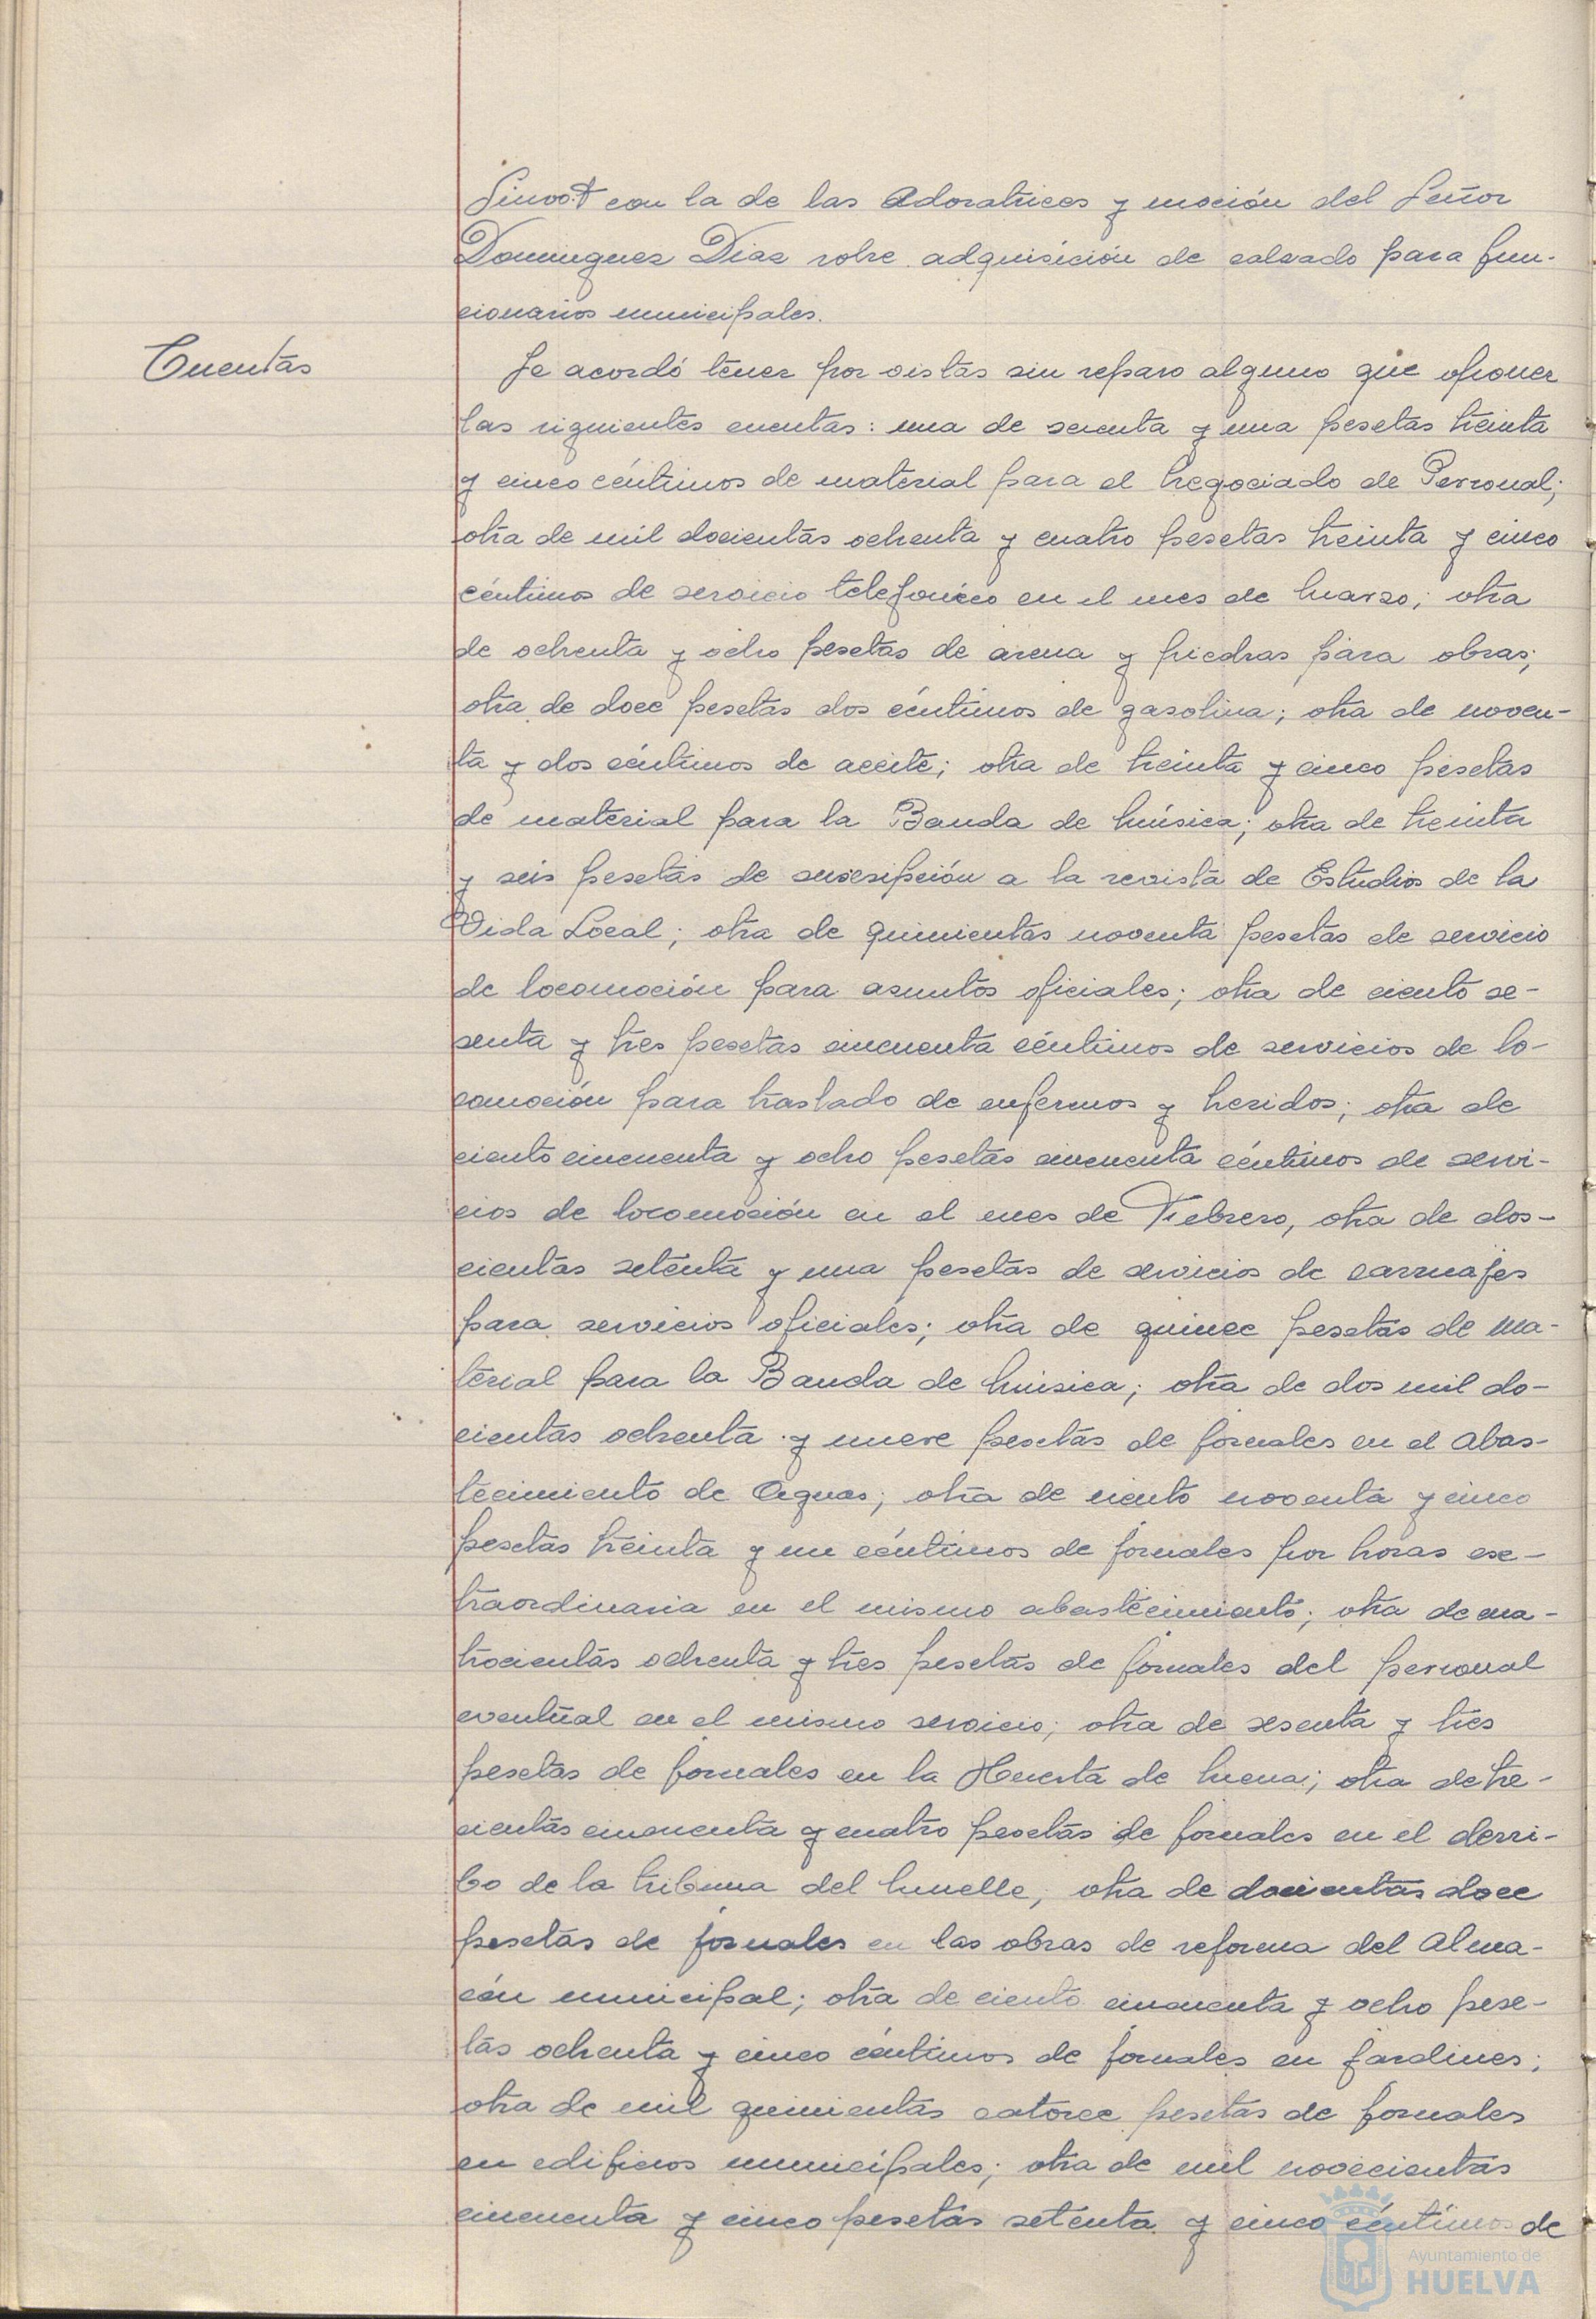 con la de las Adoratrices y moción del Señor
Dominguez Diaz sobre adquisición de calzado para fun-
cionarios municipales.
Cuentas
Se acordó tener por vistas sin reparo alguno que oponer
las siguientes cuentas: una de sesenta y una pesetas treinta
y cinco céntimos de material para el Negociado de Personal;
otra de mil docientas ochenta y cuatro pesetas treinta y cinco
céntimos de servicio telefonico en el mes de Marzo; otra
de ochenta y ocho pesetas de arena y piedras para obras;
otra de doce pesetas dos céntimos de gasolina; otra de noven-
ta y dos céntimos de aceite; otra de treinta y cinco pesetas
de material para la Banda de Música; otra de treinta
y seis pesetas de suscripción a la revista de Estudios de la
Vida Local; otra de quinientas noventa pesetas de servicio
de locomoción para asuntos oficiales; otra de ciento se-
senta y tres pesetas cincuenta céntimos de servicios de lo-
comoción para traslado de enfermos y heridos; otra de
ciento cincuenta y ocho pesetas cincuenta céntimos de servi-
cios de locomoción en el mes de Febrero, otra de dos-
cientas setenta y una pesetas de servicios de carruajes
para servicios oficiales; otra de quince pesetas de ma-
terial para la Banda de Música; otra de dos mil do-
cientas ochenta y nueve pesetas de jornales en el Abas-
tecimiento de Aguas; otra de ciento noventa y cinco
pesetas treinta y un céntimos de jornales por horas ex-
traordinaria en el mismo abastecimiento; otra de cua-
trocientas ochenta y tres pesetas de jornales del personal
eventual en el mismo servicio; otra de sesenta y tres
pesetas de jornales en la Huerta de Mena; otra de tre-
cientas cincuenta y cuatro pesetas de jornales en el derri-
bo de la tribuna del Muelle, otra de docientas doce
pesetas de jornales en las obras de reforma del Alma-
cén municipal; otra de ciento cincuenta y ocho pese-
tas ochenta y cinco céntimos de jornales en Jardines;
otra de mil quinientas catorce pesetas de jornales
en edificios municipales; otra de mil novecientas
cincuenta y cinco pesetas setenta y cinco céntimos de
Ayuntamiento de
HUELVA